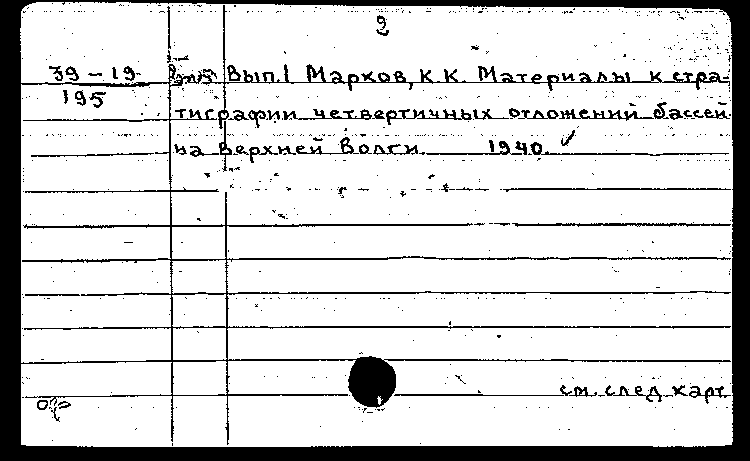 2
39-19
195
Вып.1 Марков, К.К. Материалы к стра-
тиграфии четвертичных отложений бассей-
на Верхней Волги. 1940.
см. след. карт.